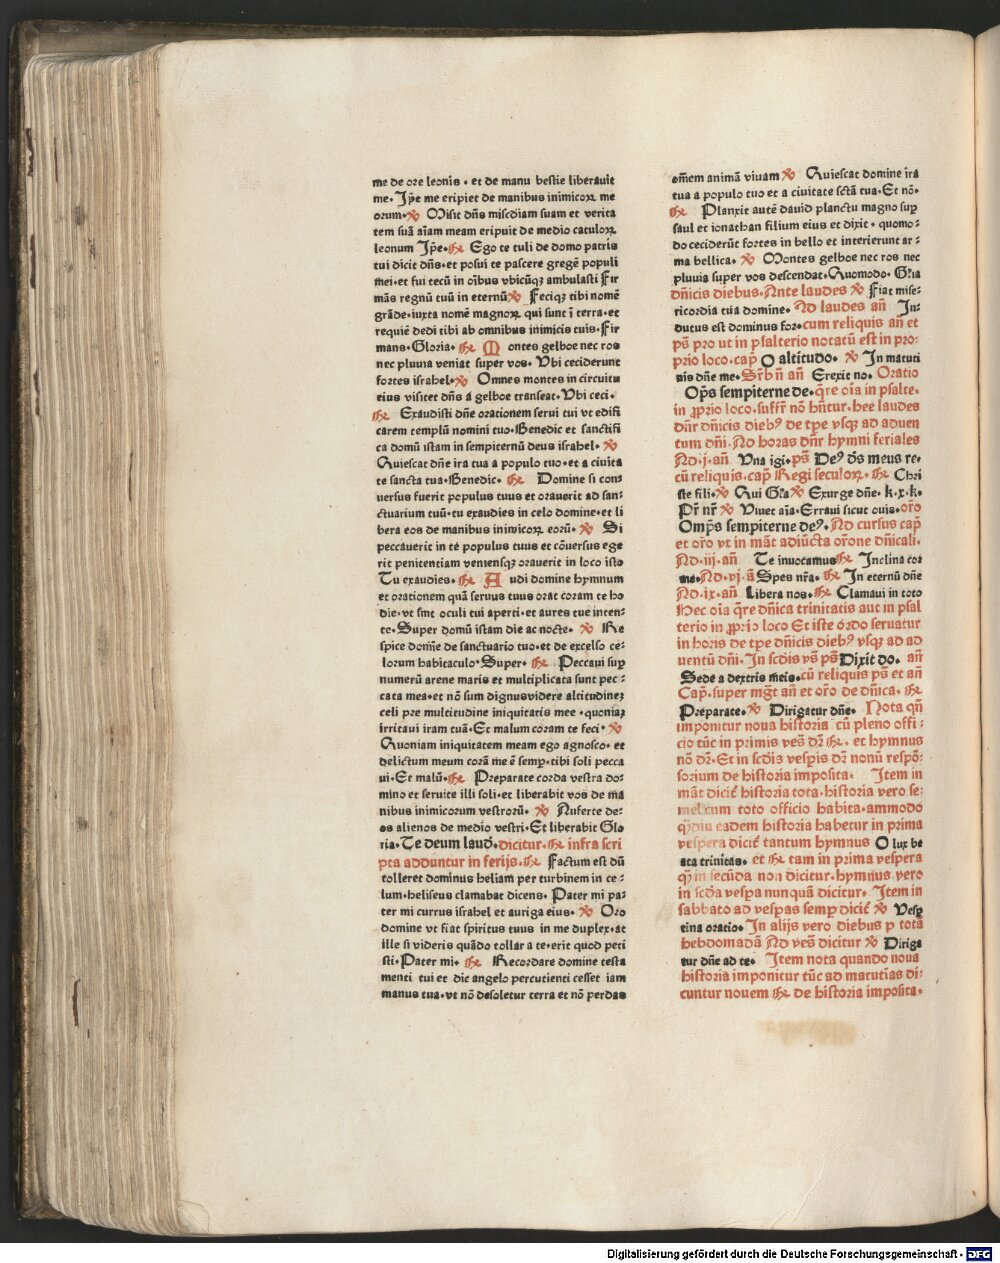 me de ore leonis . et de manu bestie liberauit
me. Ip̄e me eripiet de manibus inimicoꝝ me
orum. ℣ Misit dn̄s misc̄diam suam et verita
tem suā aīam meam eripuit de medio catuloꝝ
leonum Ip̄e. ℟ Ego te tuli de domo patris
tui dicit dn̄s. et posui te pascere gregē populi
mei. et fui tecū in oībus vbicūqȝ ambulasti Fir
mās regnū tuū in eternū ℣ Feciqȝ tibi nomē
grāde. iuxta nomē magnoꝝ qui sunt ī terra. et
requiē dedi tibi ab omnibus inimicis tuis. Fir
mans. Gloria. ℟ Montes gelboe nec ros
nec pluuia veniat super vos. Vbi ceciderunt
fortes israhel. ℣ Omnes montes in circuitu
eius visitet dn̄s a gelboe transeat. Vbi ceci.
℟ Exaudisti dn̄e orationem serui tui vt edifi
carem templū nomini tuo. Benedic et sanctifi
ca domū istam in sempiternū deus israhel. ℣
Quiescat dn̄e ira tua a populo tuo. et a ciuita
te sancta tua. Benedic. ℟ Domine si con:
uersus fuerit populus tuus et orauerit ad san:
ctuarium tuū. tu exaudies in celo domine. et li
bera eos de manibus inimicoꝝ eorū. ℣ Si
peccauerit in te populus tuus et cōuersus ege
rit penitentiam veniensqȝ orauerit in loco isto
Tu exaudies. ℟ Audi domine hymnum
et orationem quā seruus tuus orat coram te ho
die. vt sint oculi tui aperti. et aures tue inten:
te. Super domū istam die ac nocte. ℣ Re
spice domīe de sanctuario tuo. et de excelso ce:
lorum habitaculo. Super. ℟ Peccaui suꝑ
numerū arene maris et multiplicata sunt pec:
cata mea. et nō sum dignus videre altitudineȝ
celi pre multitudine iniquitatis mee . quoniaȝ
irritaui iram tuā. Et malum coram te feci. ℣
Quoniam iniquitatem meam ego agnosco. et
delictum meum corā me ē semꝑ. tibi soli pecca
ui. Et malū. ℟ Preparate corda vestra do:
mino et seruite illi soli. et liberabit vos de ma
nibus inimicorum vestrorū. ℣ Auferte de:
os alienos de medio vestri. Et liberabit Glo
ria. Te deum laud̄. dicitur. ℟ infra scri
pta adduntur in ferijs. ℟ Factum est dū
tolleret dominus heliam per turbinem in ce:
lum. heliseus clamabat dicens. Pater mi pa:
ter mi currus israhel et auriga eius. ℣ Oro
domine vt fiat spiritus tuus in me duplex. at
ille si videris quādo tollar a te. erit quod peti
sti. Pater mi. ℟ Recordare domine testa
menti tui et dic angelo percutienti cesset iam
manus tua. vt nō desoletur terra et nō perdas
om̄em animā viuam ℣ Quiescat domine ira
tua a populo tuo et a ciuitate sctā tua. Et nō.
℟ Planxit autē dauid planctu magno suꝑ
saul et ionathan filium eius et dixit . quomo:
do ceciderūt fortes in bello et interierunt ar:
ma bellica. ℣ Montes gelboe nec ros nec
pluuia super vos descendat. Quomodo. Gl̄ia
dn̄icis diebus. Ante laudes ℣ Fiat mise:
ricordia tua domine. Ad laudes an̄ In:
dutus est dominus for. cum reliquis an̄ et
ps̄ pro ut in psalterio notatū est in pro:
prio loco. cap̄ O altitudo. ℣ In matuti
nis dn̄e me. Sr̄ bn̄ an̄ Erexit no. Oratio
Op̄s sempiterne de. q̄re oīa in psalte.
in ꝓprio loco. suffr̄ nō hn̄tur. hee laudes
dn̄r dn̄icis diebꝰ de tp̄e vsqȝ ad aduen
tum dn̄i. Ad horas dn̄r hymni feriales
Ad. j. an̄ Vna igi. ps̄ Deꝰ ds̄ meus re.
cū reliquis. cap̄ Regi seculoꝝ. ℟ Chri
ste fili. ℣ Qui Gl̄a ℣ Exurge dn̄e. k. x. k.
Pr̄ nr̄ ℣ Viuet aīa. Erraui sicut ouis. or̄o
Omp̄s sempiterne deꝰ. Ad cursus cap̄
et or̄o vt in māt adiūcta or̄one dn̄icali.
Ad. iij. an̄ Te inuocamus ℟ Inclina cor
me. Ad. vj. ā Spes nr̄a. ℟ In eternū dn̄e
Ad. ix. an̄ Libera nos. ℟ Clamaui in toto
Hec oīa q̄re dn̄ica trinitatis aut in psal
terio in ꝓprio loco Et iste ordo seruatur
in horis de tp̄e dn̄icis diebꝰ vsqȝ ad ad
uentū dn̄i. In scd̄is vs̄ ps̄ Dixit do. an̄
Sede a dextris meis. cū reliquis ps̄ et an̄
Cap̄. super mḡt an̄ et or̄o de dn̄ica. ℟
Preparate. ℣ Dirigatur dn̄e. Nota qn̄
imponitur noua historia cū pleno offi:
cio tūc in primis ves̄ dr̄ ℟. et hymnus
nō dr̄. Et in scd̄is vesꝑis dr̄ nonū respō:
sorium de historia imposita. Item in
māt dicit̄ historia tota. historia vero se:
mel cum toto officio habita. ammodo
qȝdiu eadem historia habetur in prima
vespera dicit̄ tantum hymnus O lux be
ata trinitas. et ℟ tam in prima vespera
qȝ in secūda non dicitur. hymnus vero
in scd̄a vesꝑa nunquā dicitur. Item in
sabbato ad vesꝑas semꝑ dicit̄ ℣ Vesꝑ
tina oratio. In alijs vero diebus ꝑ totā
hebdomadā Ad ves̄ dicitur ℣ Diriga
tur dn̄e ad te. Item nota quando noua
historia imponitur tūc ad matutīas di:
cuntur nouem ℟ de historia imposita.
Digitalisierung gefördert durch die Deutsche Forschungsgemeinschaft - DFG